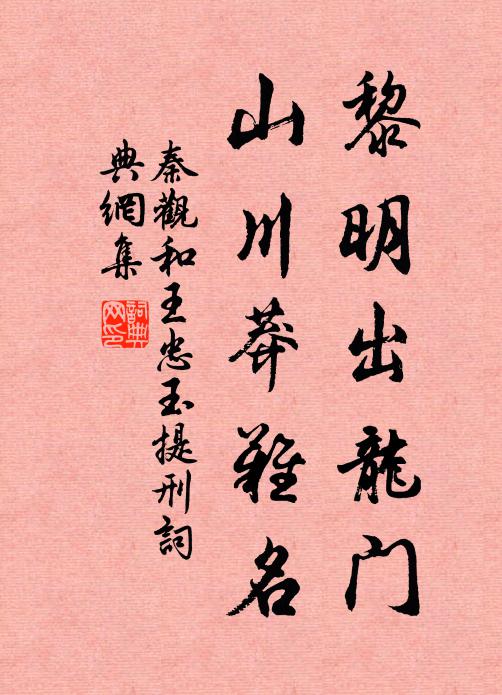 黎明出龍門
山川莽難名
秦觀和王忠玉提刑詞
典網集
詞典
网印